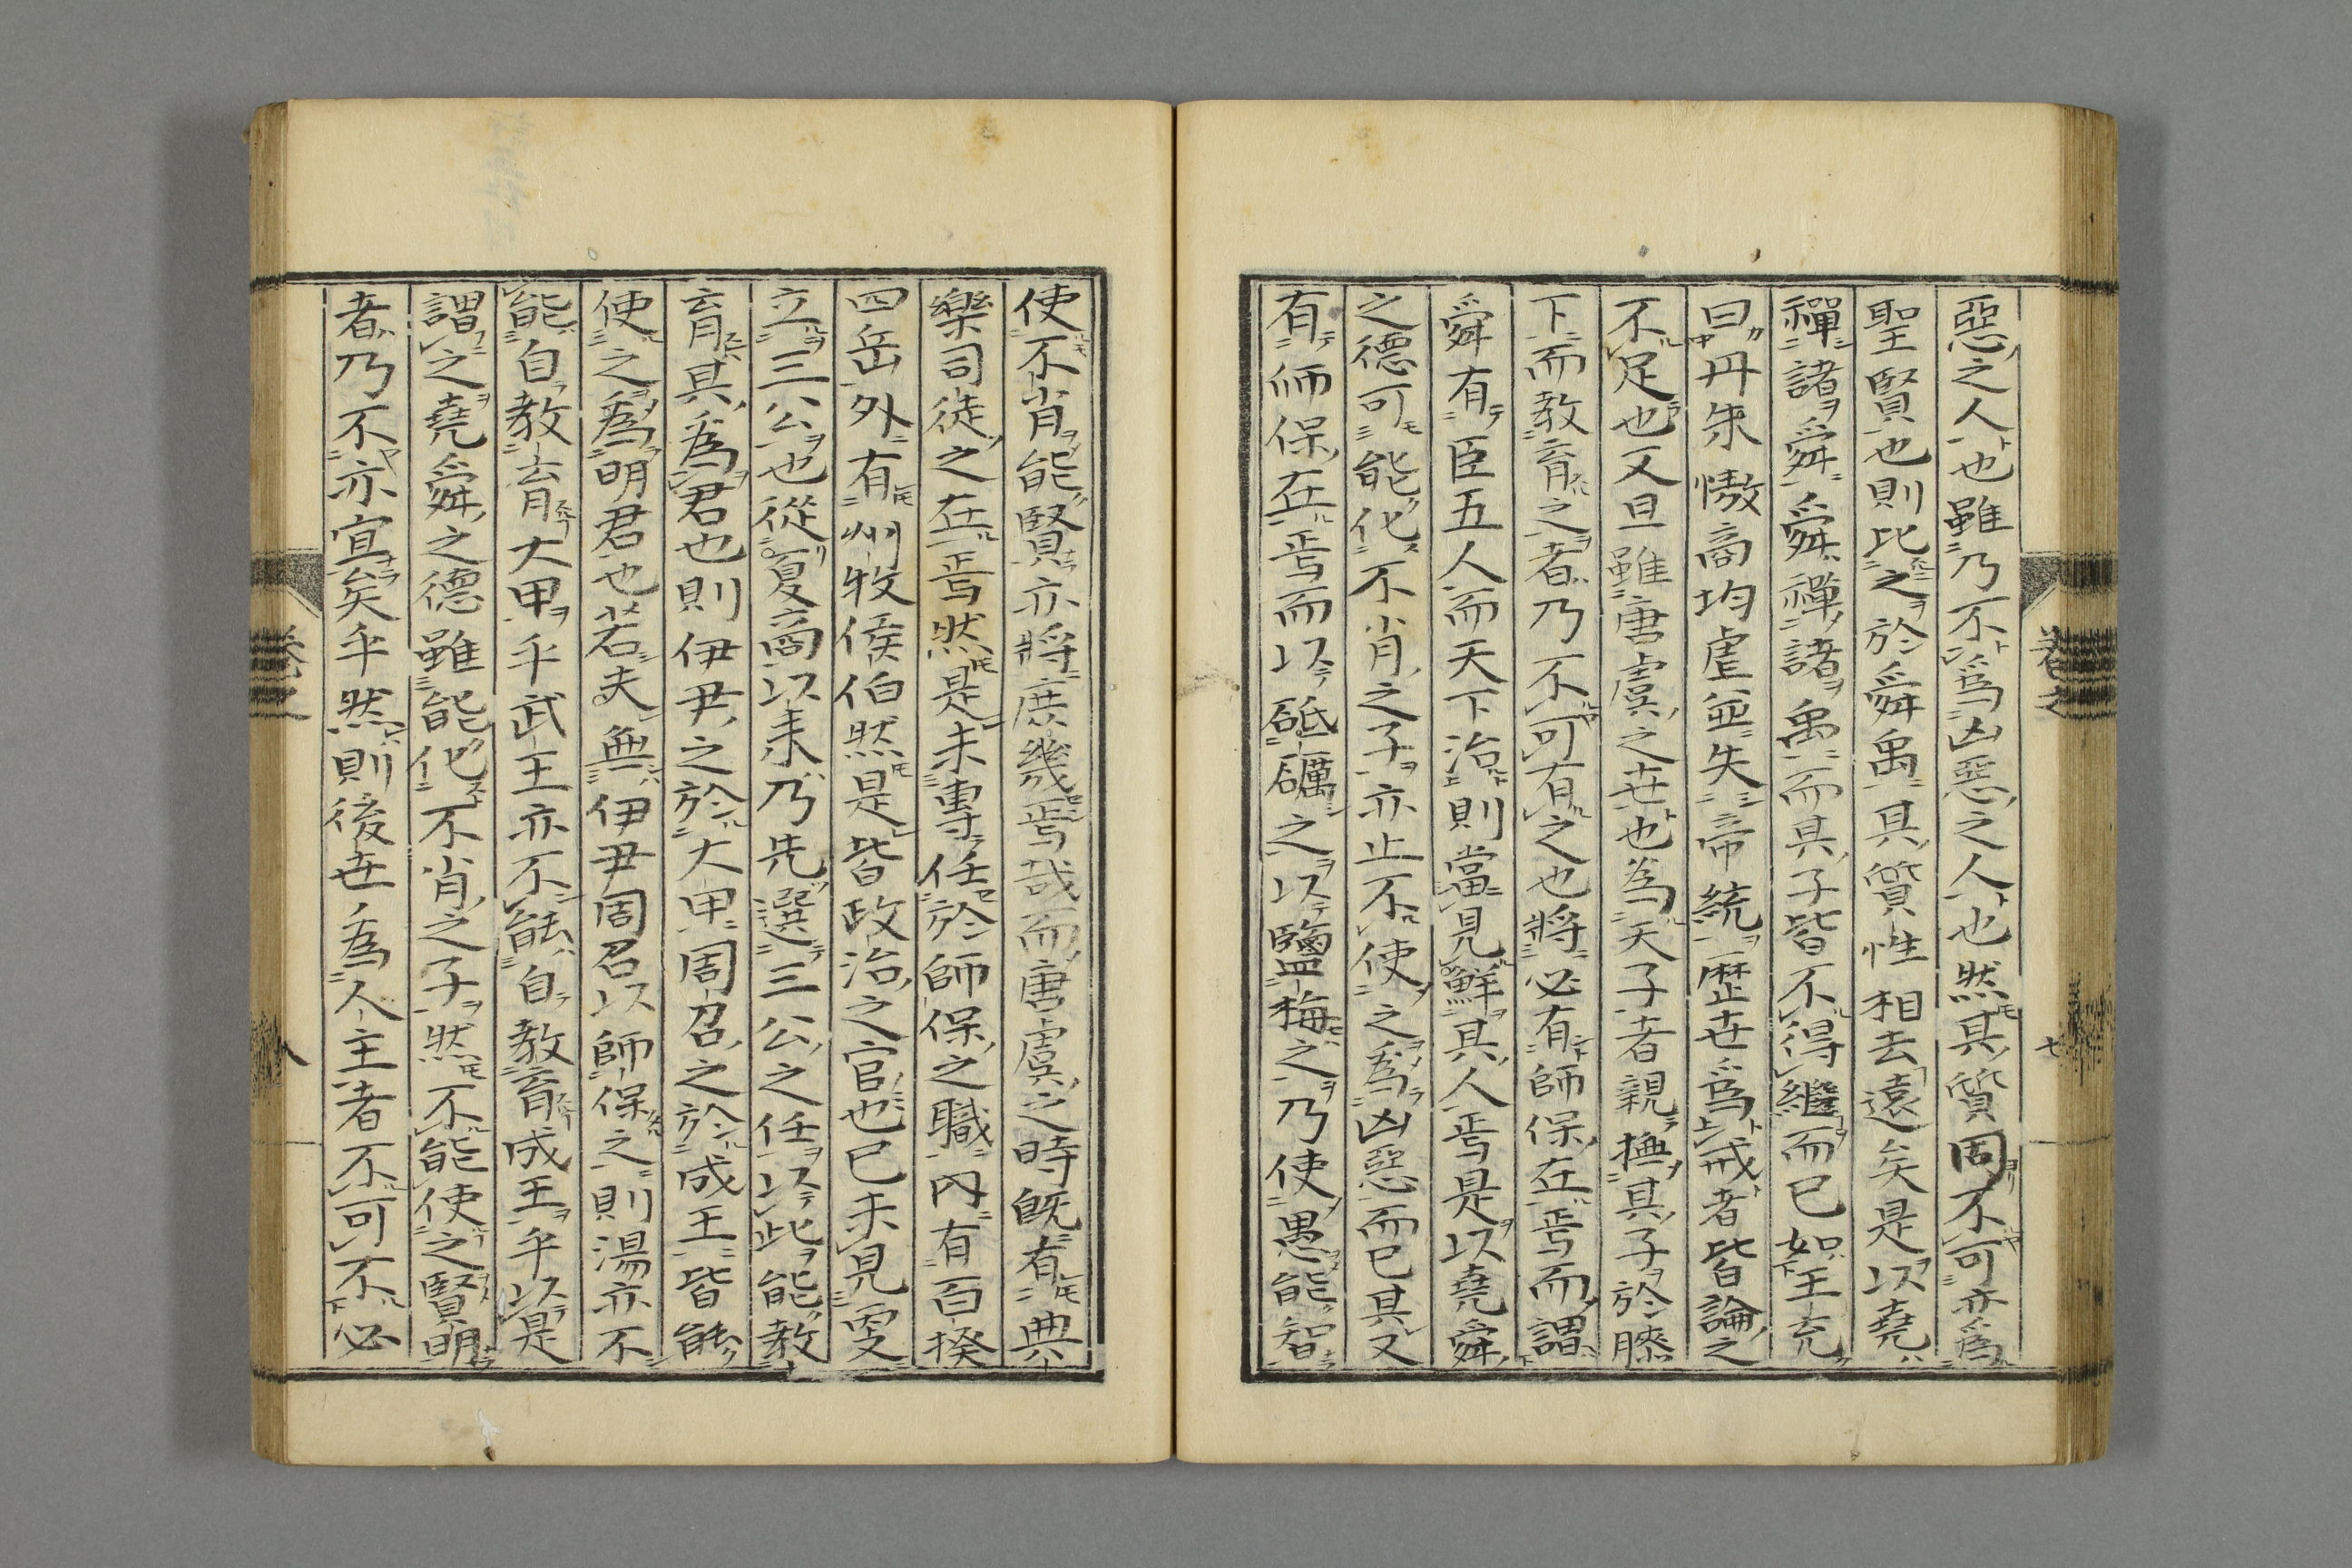 惡之人也雖乃不爲凶惡之人也然其質固不可亦爲
聖賢也則比之於舜禹其質性相去遠矣是以堯
禪諸舜舜禪諸禹而其子皆不得繼而已如王充
曰丹朱慠商均虐並失帝統歷世爲戒者皆論之
不足也又且雖唐虞之世也爲天子者親撫其子於膝
下而教育之者乃不可有之也將必有師保在焉而謂
舜有臣五人而天下治則當見鮮其人焉是以堯舜
之德可能化不肖之子亦止不使之爲凶惡而已其又
有師保在焉而以砥礪之以鹽梅之乃使愚能智
使不肖能賢亦將庶幾焉哉而唐虞之時既有典
樂司徒之在焉然是未專任於師保之職内有百揆
四岳外有州牧侯伯然是皆政治之官也已未見雯
立三公也從夏商以来乃先選三公之任以此能教
育其爲君也則伊尹之於大甲周召之於成王皆能
使之爲明君也若夫無伊尹周召以師保之則湯亦不
能自教育大甲乎武王亦不能自教育成王乎以是
謂之堯舜之德雖能化不肖之子然不能使之賢明
者乃不亦宜矣乎然則後世爲人主者不可不必
卷之 七
卷之 八